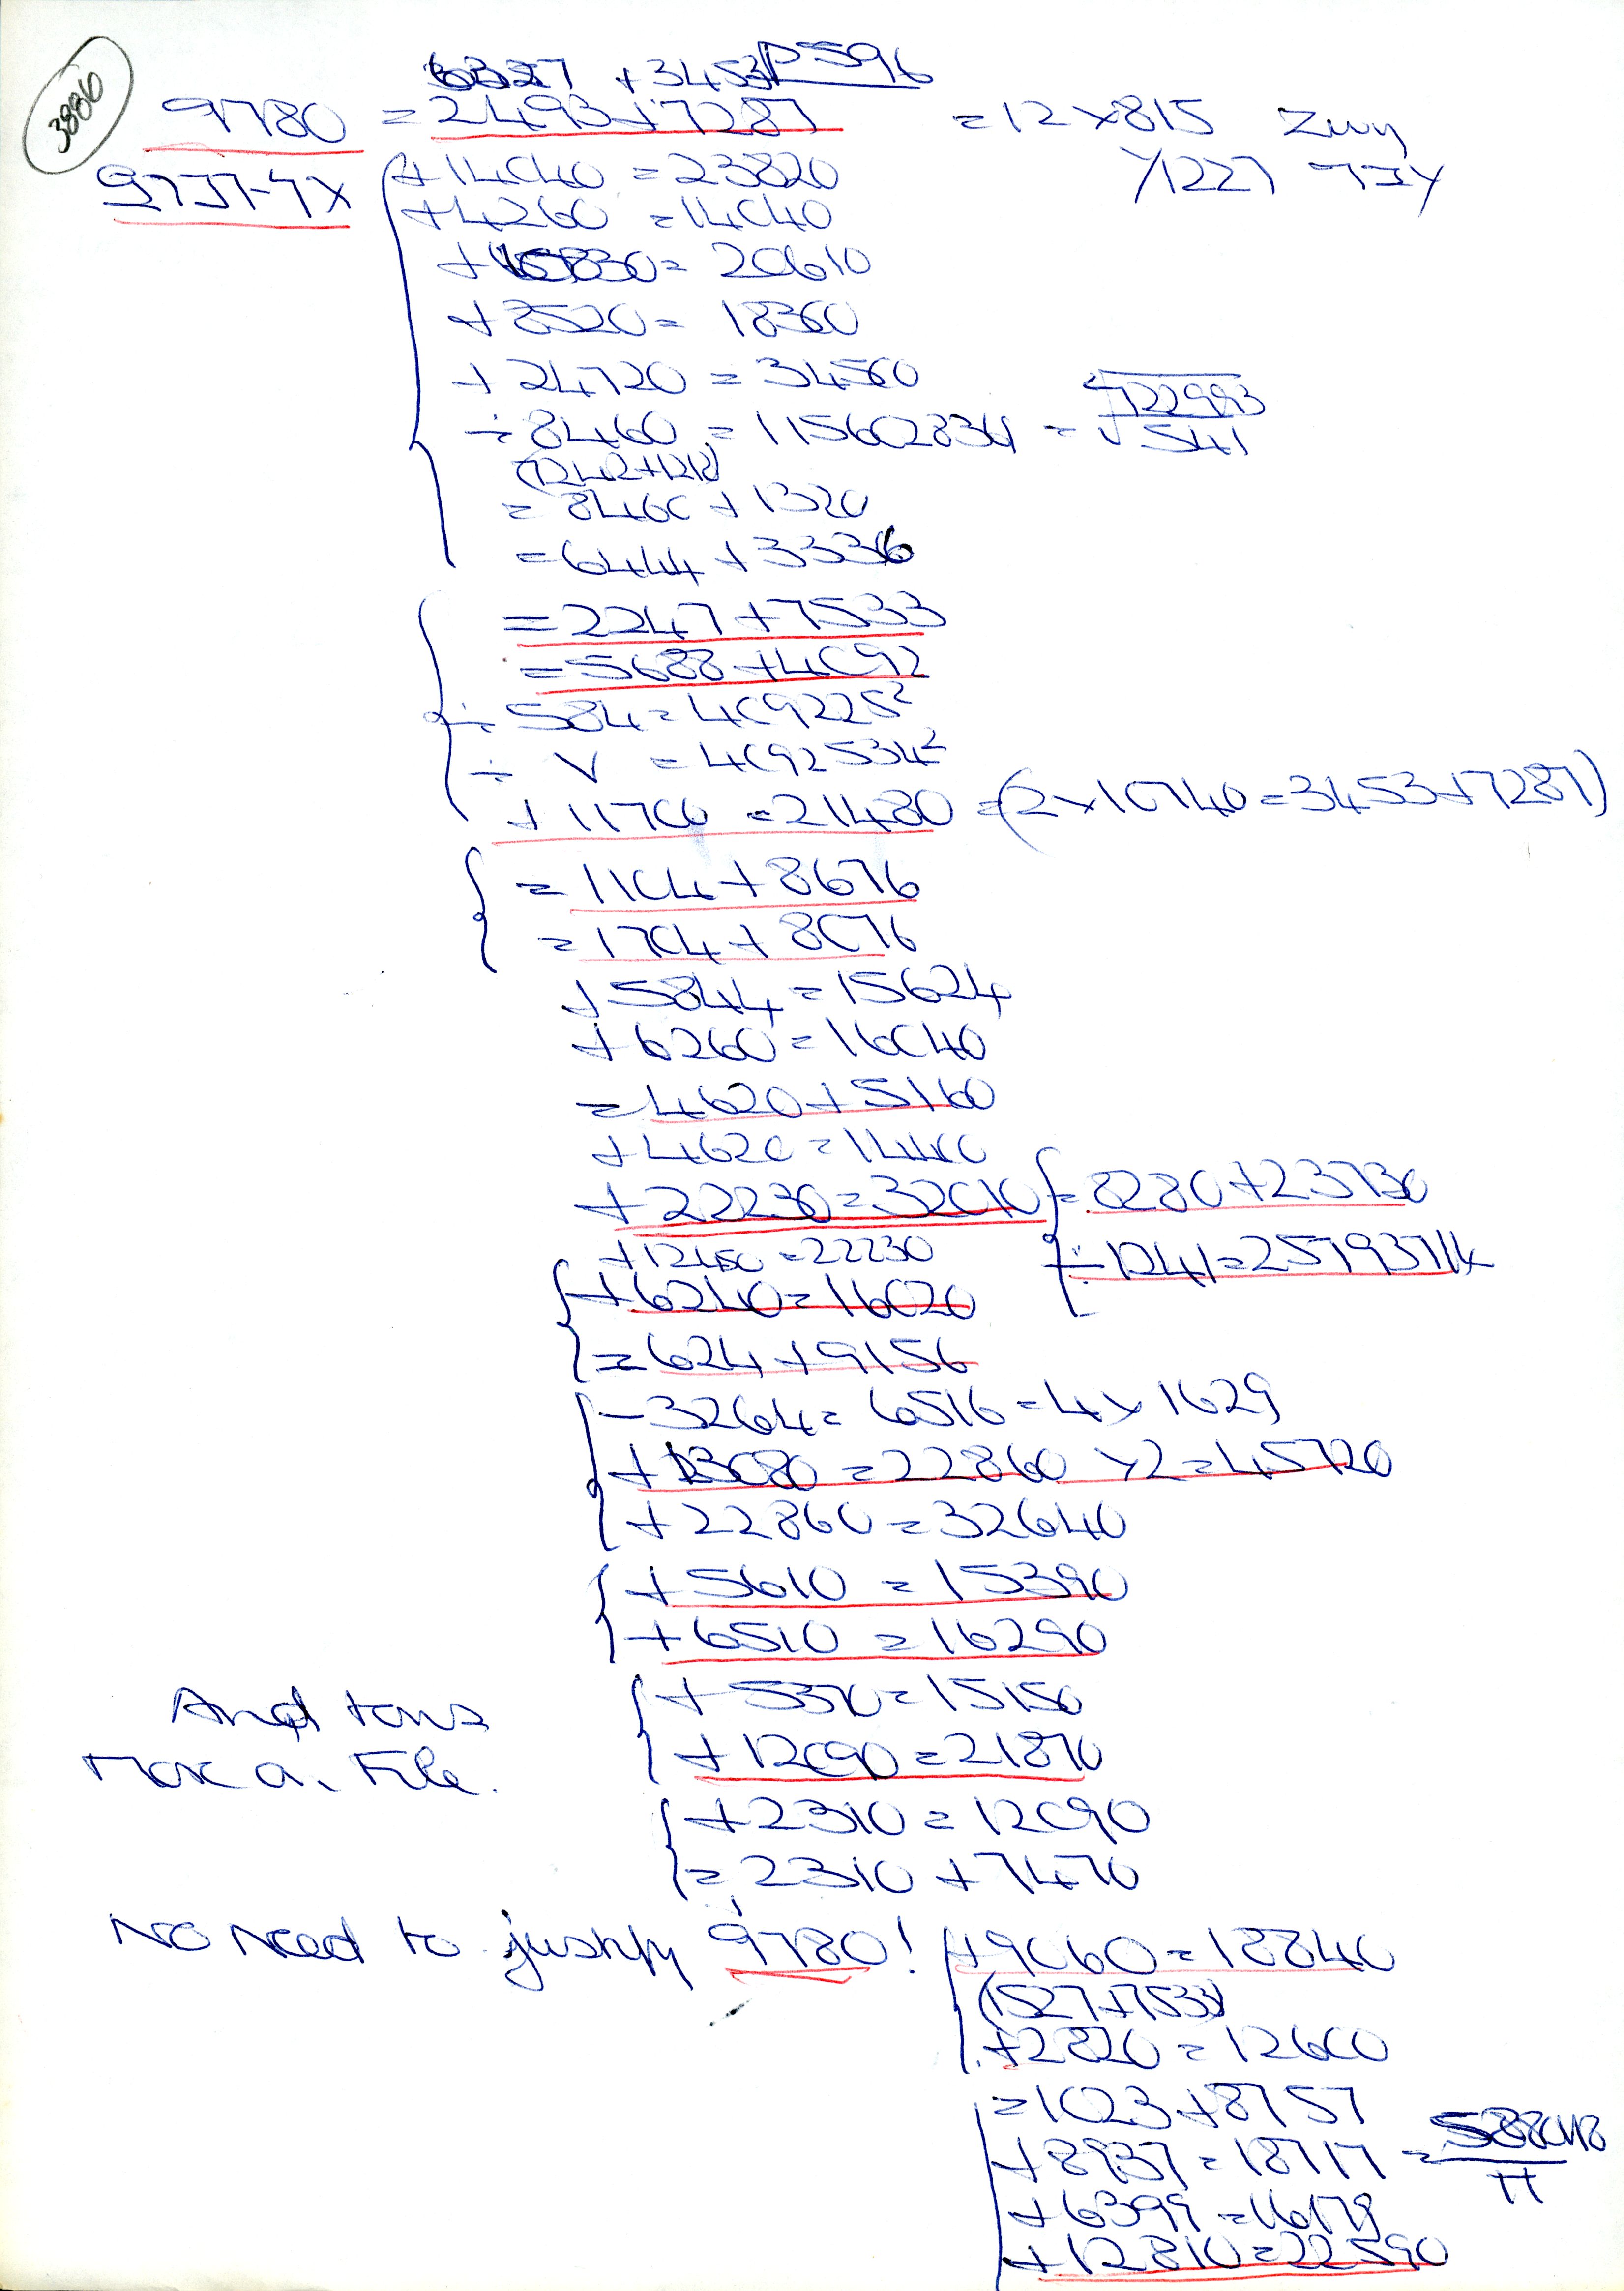 3886
6327 + 3453 P596
9780 = 2493+7287 = 12×815
+14040 = 23820
+4260 = 14040
= 20610
+8520 = 18360
+24720 = 34560
÷ 8460 = 115602834 = ⁴√722993
√541
(7242+1218)
= 8460 + 1320
= 6444 + 3336
= 2247+7533
= 5688+4092
÷ 584 = 409225²
÷ V = 4092534²
+11700 = 21480 = (2×10740 = 3453+7287)
= 1104 + 8676
= 1704 + 8076
+5844 = 15624
+6260 = 16040
= 4620+5160
+4620 = 14400
+22230 = 32010 { = 8280+23730
+12450 = 22230 ÷ 1241 = 2579371
+6240 = 16020
= 624+9156
-3264 = 6516 = 4×1629
+13080 = 22860 ×2 = 45720
+22860 = 32640
+5610 = 15390
+6510 = 16290
And tons +5370 = 15150
More on File. +12090 = 21870
+2310 = 12090
= 2310 + 7470
No Need to justify 9780! +9060 = 18840
(1527+7533)
+2820 = 12600
= 1023+8757
+8937 = 18717 = 588018
π
+6399 = 16179
+12810 = 22590